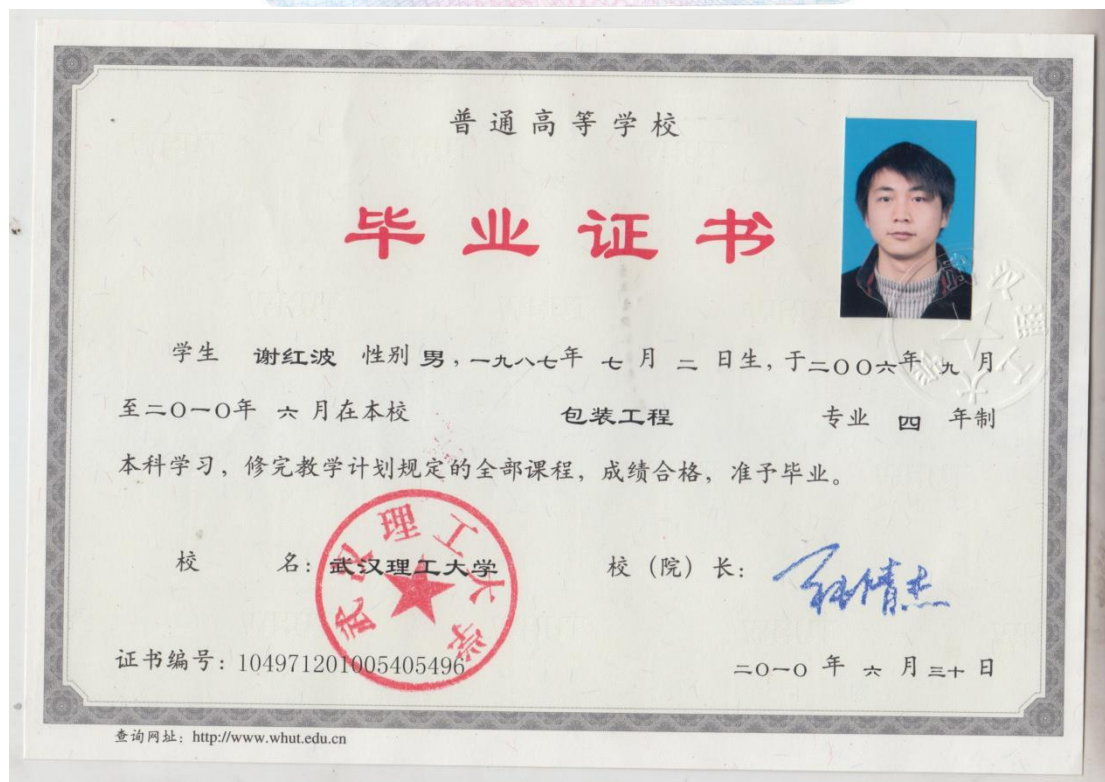 普通高等学校
毕业证书
学生 谢红波 性别 男，一九八七年 七 月 二 日生，于二〇〇六年 九 月
至二〇一〇年 六 月在本校 包装工程 专业 四 年制
本科学习，修完教学计划规定的全部课程，成绩合格，准予毕业。
校 名：武汉理工大学 校（院）长：
武汉理工大学
证书编号：104971201005405496 二〇一〇 年 六 月 三十 日
查询网址：http://www.whut.edu.cn